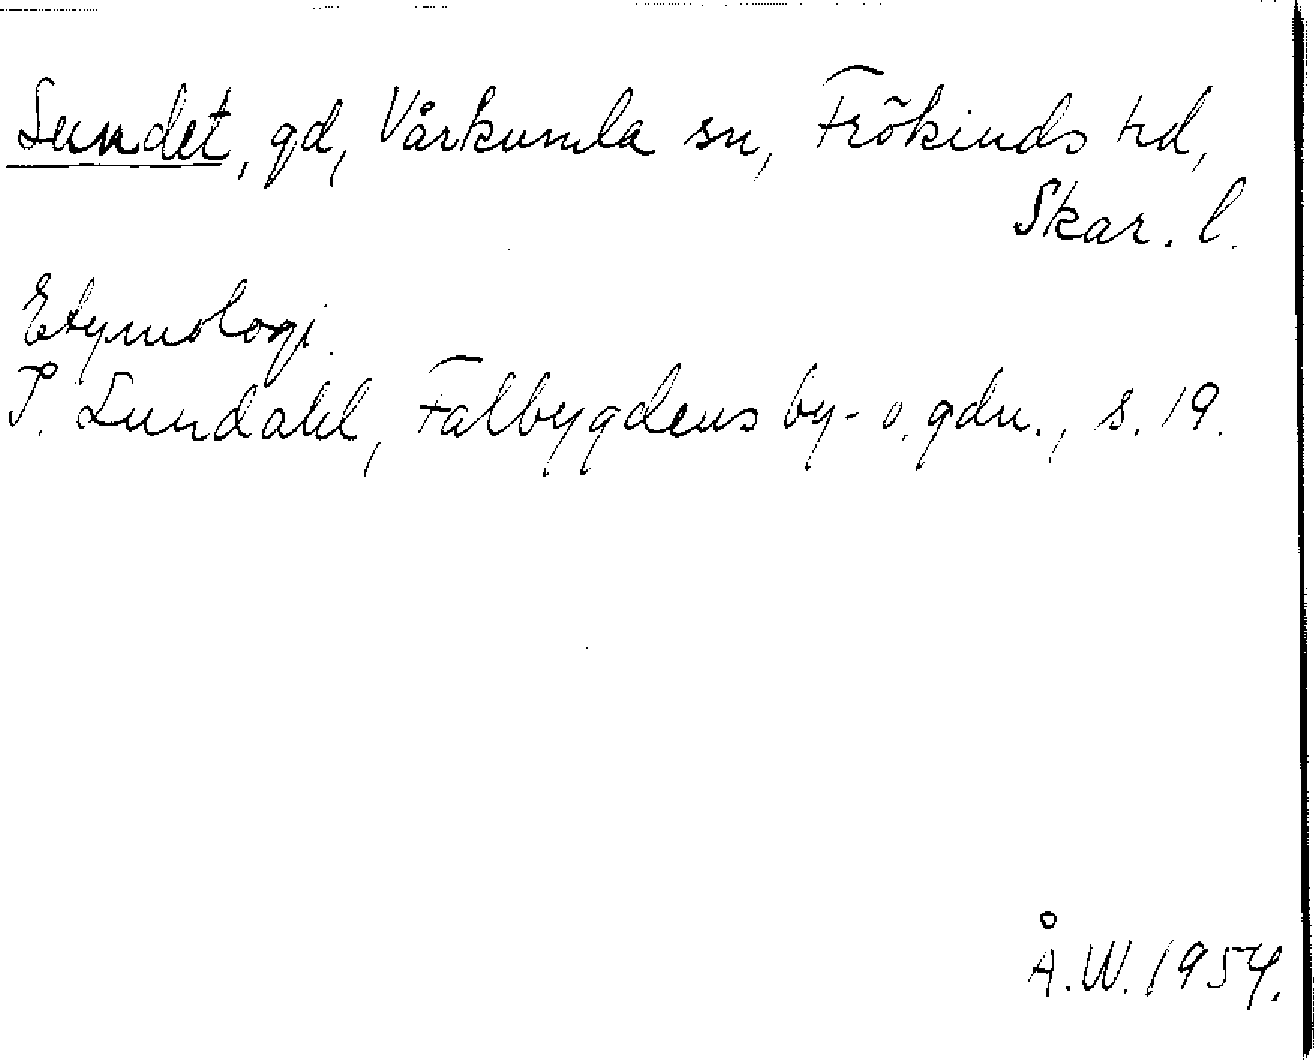 Sundet, gd, Vårkumla sn, Frökinds hd,
Skar. l.
Etymologi.
I. Lundahl, Falbygdens by- o. gdn., s. 19.
Å.W. 1954.